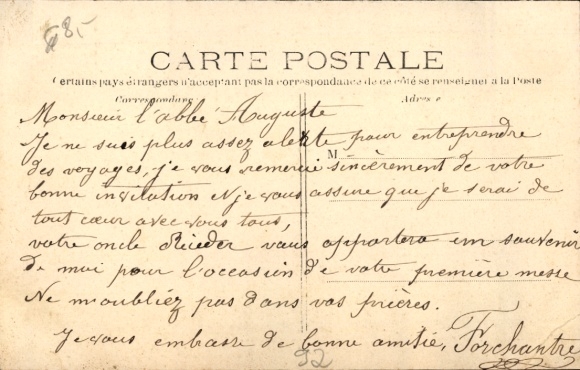 85-
CARTE POSTALE
Certains pays étrangers n'acceptant pas la correspondance de ce côté se renseigner à la Poste
Correspondance
Adresse
Monsieur l'abbé Auguste
Je ne suis plus assez alerte pour entreprendre
M
des voyages, je vous remercie sincèrement de votre
bonne invitation & je vous assure que je serai de
tout cœur avec vous tous,
votre oncle Rieder vous apportera un souvenir
de moi pour l'occasion de votre première messe
Ne m'oubliez pas dans vos prières.
Je vous embrasse de bonne amitié, Forchantre
92